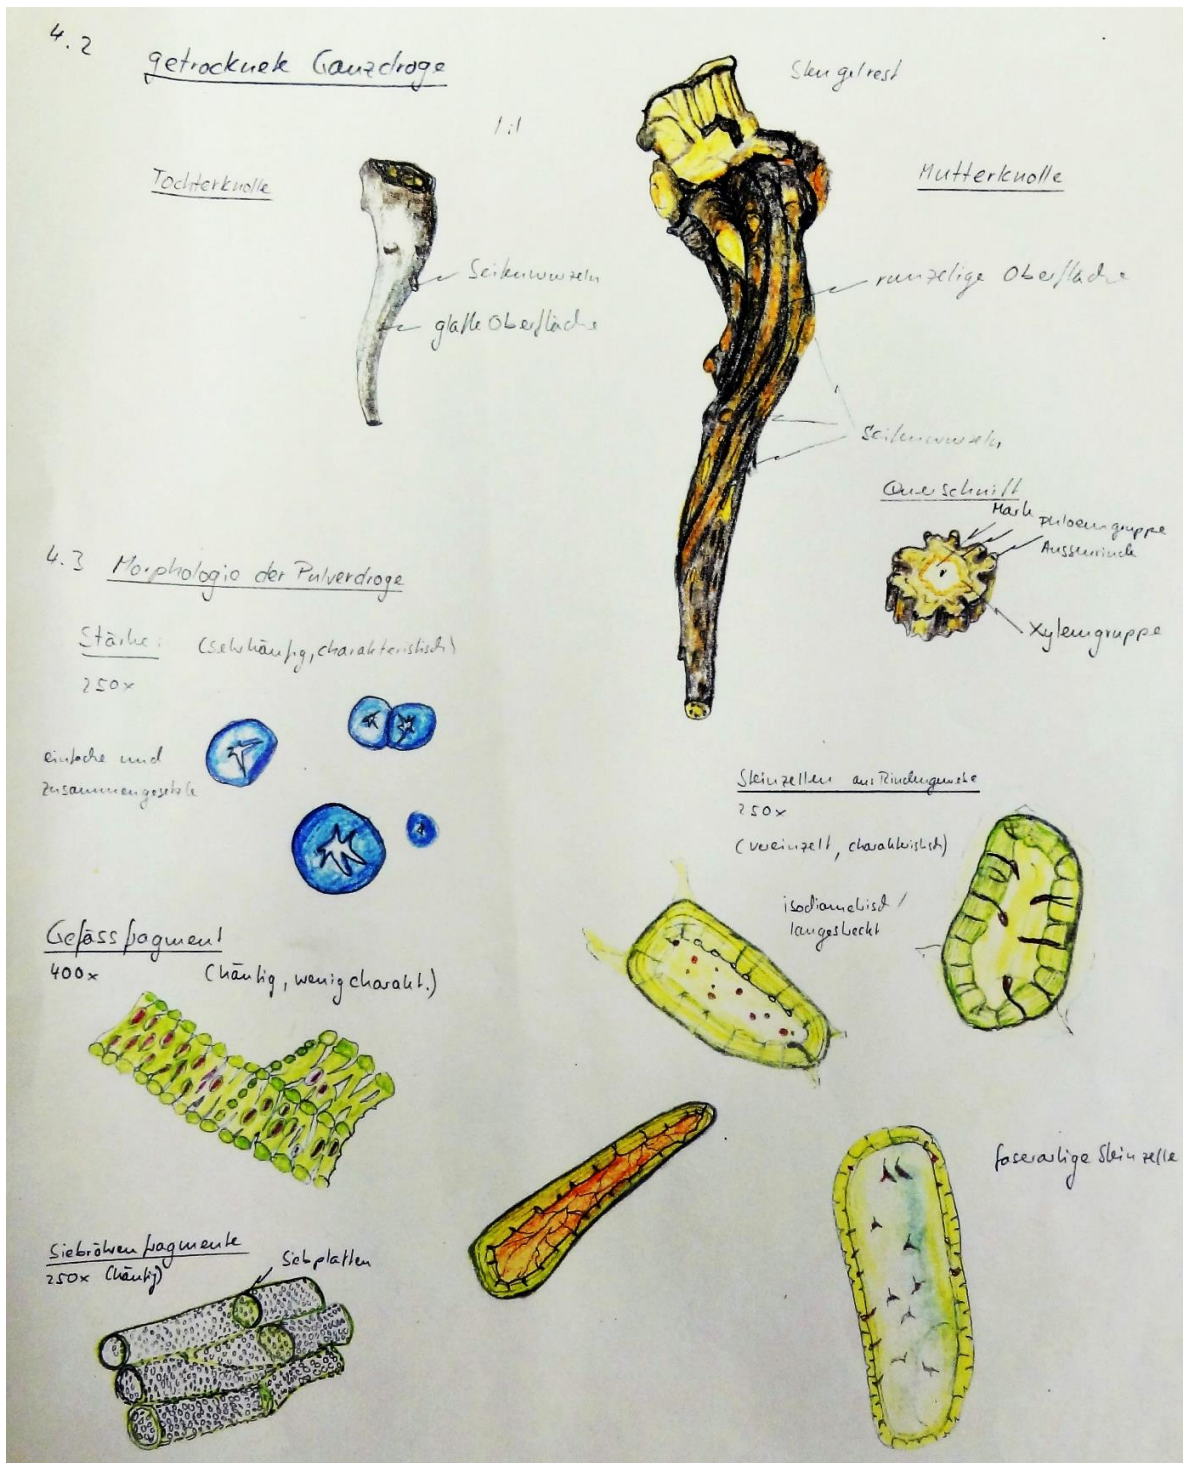 4.2
getrocknete Ganzdroge
1:1
Stengelrest
Tochterknolle
Mutterknolle
Seitenwurzeln
glatte Oberfläche
runzelige Oberfläche
Seitenwurzeln
Querschnitt
Mark
Phloemgruppe
Aussenrinde
Xylemgruppe
4.3 Morphologie der Pulverdroge
Stärke: (sehr häufig, charakteristisch)
250x
einfache und
zusammengesetzte
Steinzellen aus Rindengewebe
250x
(vereinzelt, charakteristisch)
isodiametrisch /
langestreckt
Gefässfragment
400x (häufig, wenig charakt.)
faserartige Steinzelle
Siebröhrenfragmente
250x (häufig)
Siebplatten